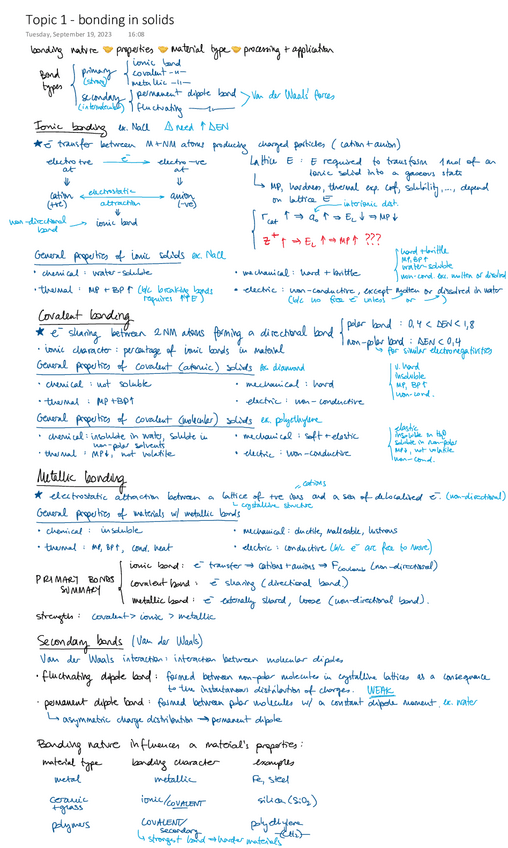 Topic 1 - bonding in solids
Tuesday, September 19, 2023 16:08
bonding nature properties material type processing + application
Bond types
primary (strong)
ionic bond
covalent -u-
metallic -u-
secondary (intermolecular)
permanent dipole bond
fluctuating
Van der Waals' forces
Ionic bonding ex. NaCl ⚠ need ↑ ΔEN
★ e⁻ transfer between M+NM atoms producing charged particles (cation + anion)
electro+ve at e⁻ → electro-ve at
⇓ ⇓
cation (+ve) ← electrostatic attraction → anion (-ve)
non-directional bond ↳ ionic bond
Lattice E : E required to transform 1 mol of an
ionic solid into a gaseous state
↳ MP, hardness, thermal exp. coef, solubility, ..., depend
on lattice E
interionic dist.
r cat ↑ → a₀ ↑ → E_L ↓ → MP ↓
Z± ↑ → E_L ↑ → MP ↑ ???
General properties of ionic solids ex. NaCl
• chemical : water-soluble
• mechanical : hard + brittle
• thermal : MP + BP ↑ (b/c breaking bonds
requires ↑↑E)
• electric : non-conductive, except molten or dissolved in water
(b/c no free e⁻ unless or )
hard + brittle
MP, BP ↑
water-soluble
non-cond. exc. molten or dissolved
Covalent bonding
★ e⁻ sharing between 2 NM atoms forming a directional bond
polar bond : 0,4 < ΔEN < 1,8
non-polar bond : ΔEN < 0,4
↳ for similar electronegativities
• ionic character : percentage of ionic bonds in material
General properties of covalent (atomic) solids ex. diamond
• chemical : not soluble
• mechanical : hard
• thermal : MP + BP ↑
• electric : non-conductive
v. hard
insoluble
MP, BP ↑
non-cond.
General properties of covalent (molecular) solids ex. polyethylene
• chemical : insoluble in water, soluble in
non-polar solvents
• mechanical : soft + elastic
• thermal : MP↓, not volatile
• electric : non-conductive
elastic
insoluble in H₂O
soluble in non-polar
MP↓, not volatile
non-cond.
Metallic bonding
cations
★ electrostatic attraction between a lattice of +ve ions and a sea of delocalised e⁻. (non-directional)
↳ crystalline structure
General properties of materials w/ metallic bonds
• chemical : insoluble
• mechanical : ductile, malleable, lustrous
• thermal : MP, BP↑, cond. heat
• electric : conductive (b/c e⁻ are free to move)
PRIMARY BONDS SUMMARY
ionic bond : e⁻ transfer → cations + anions → F coulomb (non-directional)
covalent bond : e⁻ sharing (directional bond)
metallic bond : e⁻ externally shared, loose (non-directional bond).
strength : covalent > ionic > metallic
Secondary bonds (Van der Waals)
Van der Waals interaction : interaction between molecular dipoles
• fluctuating dipole bond : formed between non-polar molecules in crystalline lattices as a consequence
to the instantaneous distribution of charges. WEAK
• permanent dipole bond : formed between polar molecules w/ a constant dipole moment ex. water
↳ asymmetric charge distribution → permanent dipole
Bonding nature influences a material's properties :
material type bonding character examples
metal metallic Fe, steel
ceramic + glass ionic/COVALENT silica (SiO₂)
polymers COVALENT/secondary polyethylene
↳ strongest bond → harder materials